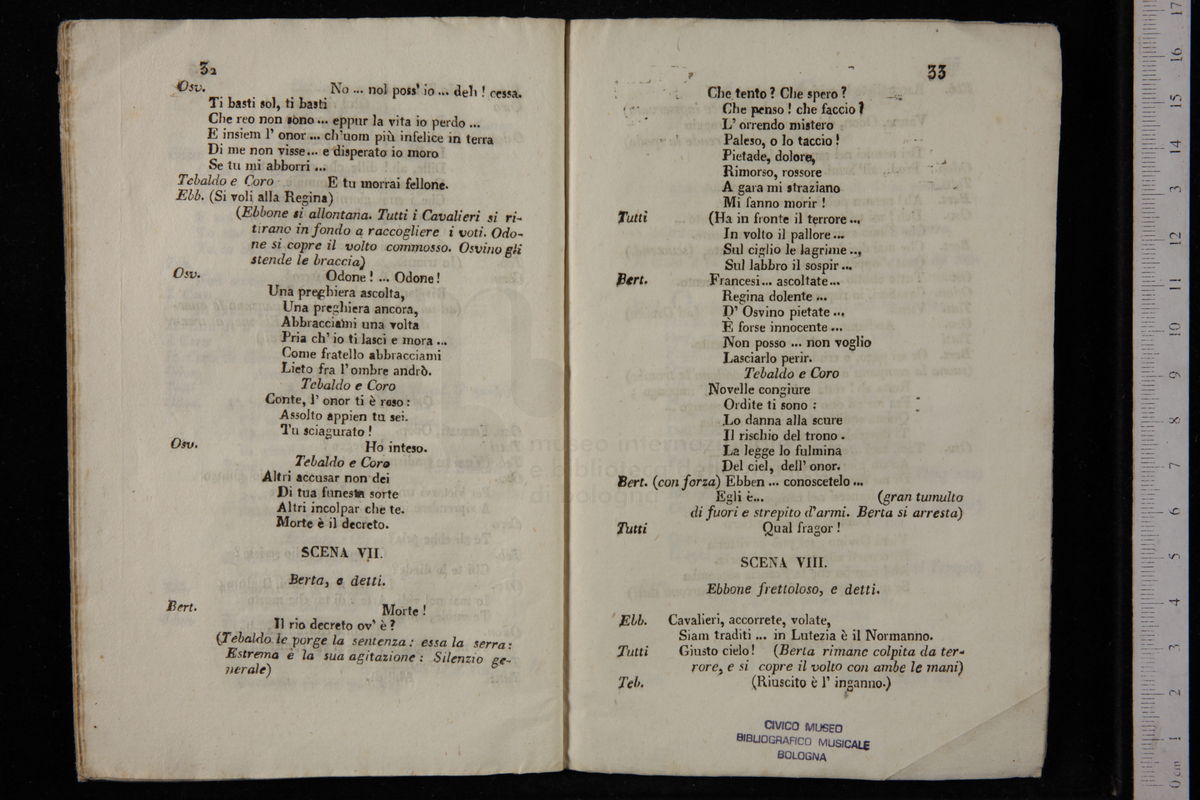 32
Osv. No ... nol poss' io ... deh ! cessa.
Ti basti sol, ti basti
Che reo non sono ... eppur la vita io perdo ...
E insiem l' onor ... ch'uom più infelice in terra
Di me non visse... e disperato io moro
Se tu mi abborri ...
Tebaldo e Coro E tu morrai fellone.
Ebb. (Si voli alla Regina)
(Ebbone si allontana. Tutti i Cavalieri si ri-
tirano in fondo a raccogliere i voti. Odo-
ne si copre il volto commosso. Osvino gli
stende le braccia)
Osv. Odone ! ... Odone !
Una preghiera ascolta,
Una preghiera ancora,
Abbracciami una volta
Pria ch' io ti lasci e mora ...
Come fratello abbracciami
Lieto fra l' ombre andrò.
Tebaldo e Coro
Conte, l' onor ti è reso :
Assolto appien tu sei.
Tu sciagurato !
Osv. Ho inteso.
Tebaldo e Coro
Altri accusar non dei
Di tua funesta sorte
Altri incolpar che te.
Morte è il decreto.
SCENA VII.
Berta, e detti.
Bert. Morte !
Il rio decreto ov' è ?
(Tebaldo le porge la sentenza : essa la serra :
Estrema è la sua agitazione : Silenzio ge-
nerale)
33
Che tento ? Che spero ?
Che penso ! che faccio ?
L' orrendo mistero
Paleso, o lo taccio !
Pietade, dolore,
Rimorso, rossore
A gara mi straziano
Mi fanno morir !
Tutti (Ha in fronte il terrore ...
In volto il pallore ...
Sul ciglio le lagrime ...
Sul labbro il sospir ...
Bert. Francesi ... ascoltate ...
Regina dolente ...
D' Osvino pietate ...
È forse innocente ...
Non posso ... non voglio
Lasciarlo perir.
Tebaldo e Coro
Novelle congiure
Ordite ti sono :
Lo danna alla scure
Il rischio del trono .
La legge lo fulmina
Del ciel, dell' onor.
Bert. (con forza) Ebben ... conoscetelo ...
Egli è... (gran tumulto
di fuori e strepito d'armi. Berta si arresta)
Tutti Qual fragor !
SCENA VIII.
Ebbone frettoloso, e detti.
Ebb. Cavalieri, accorrete, volate,
Siam traditi ... in Lutezia è il Normanno.
Tutti Giusto cielo ! (Berta rimane colpita da ter-
rore, e si copre il volto con ambe le mani)
Teb. (Riuscito è l' inganno.)
CIVICO MUSEO
BIBLIOGRAFICO MUSICALE
BOLOGNA
museo internaz
e biblioteca della
di bologna
0 cm 1 2 3 4 5 6 7 8 9 10 11 12 13 14 15 16 17